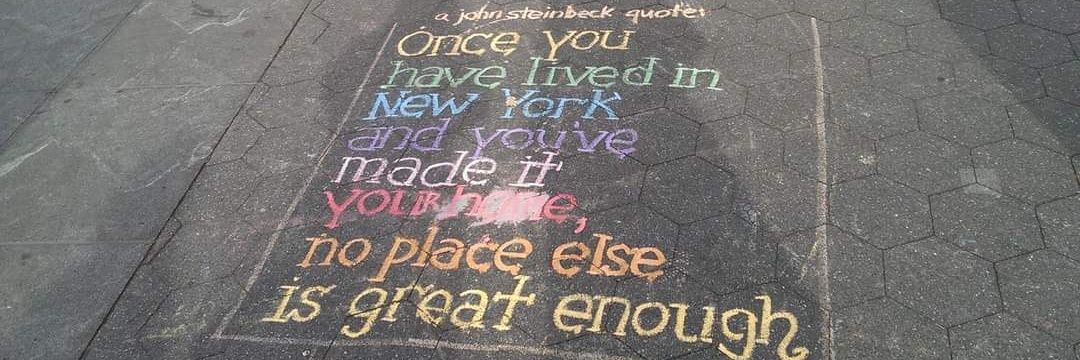 a john steinbeck quote:
Once you
have lived in
New York
and you've
made it
your home,
no place else
is great enough